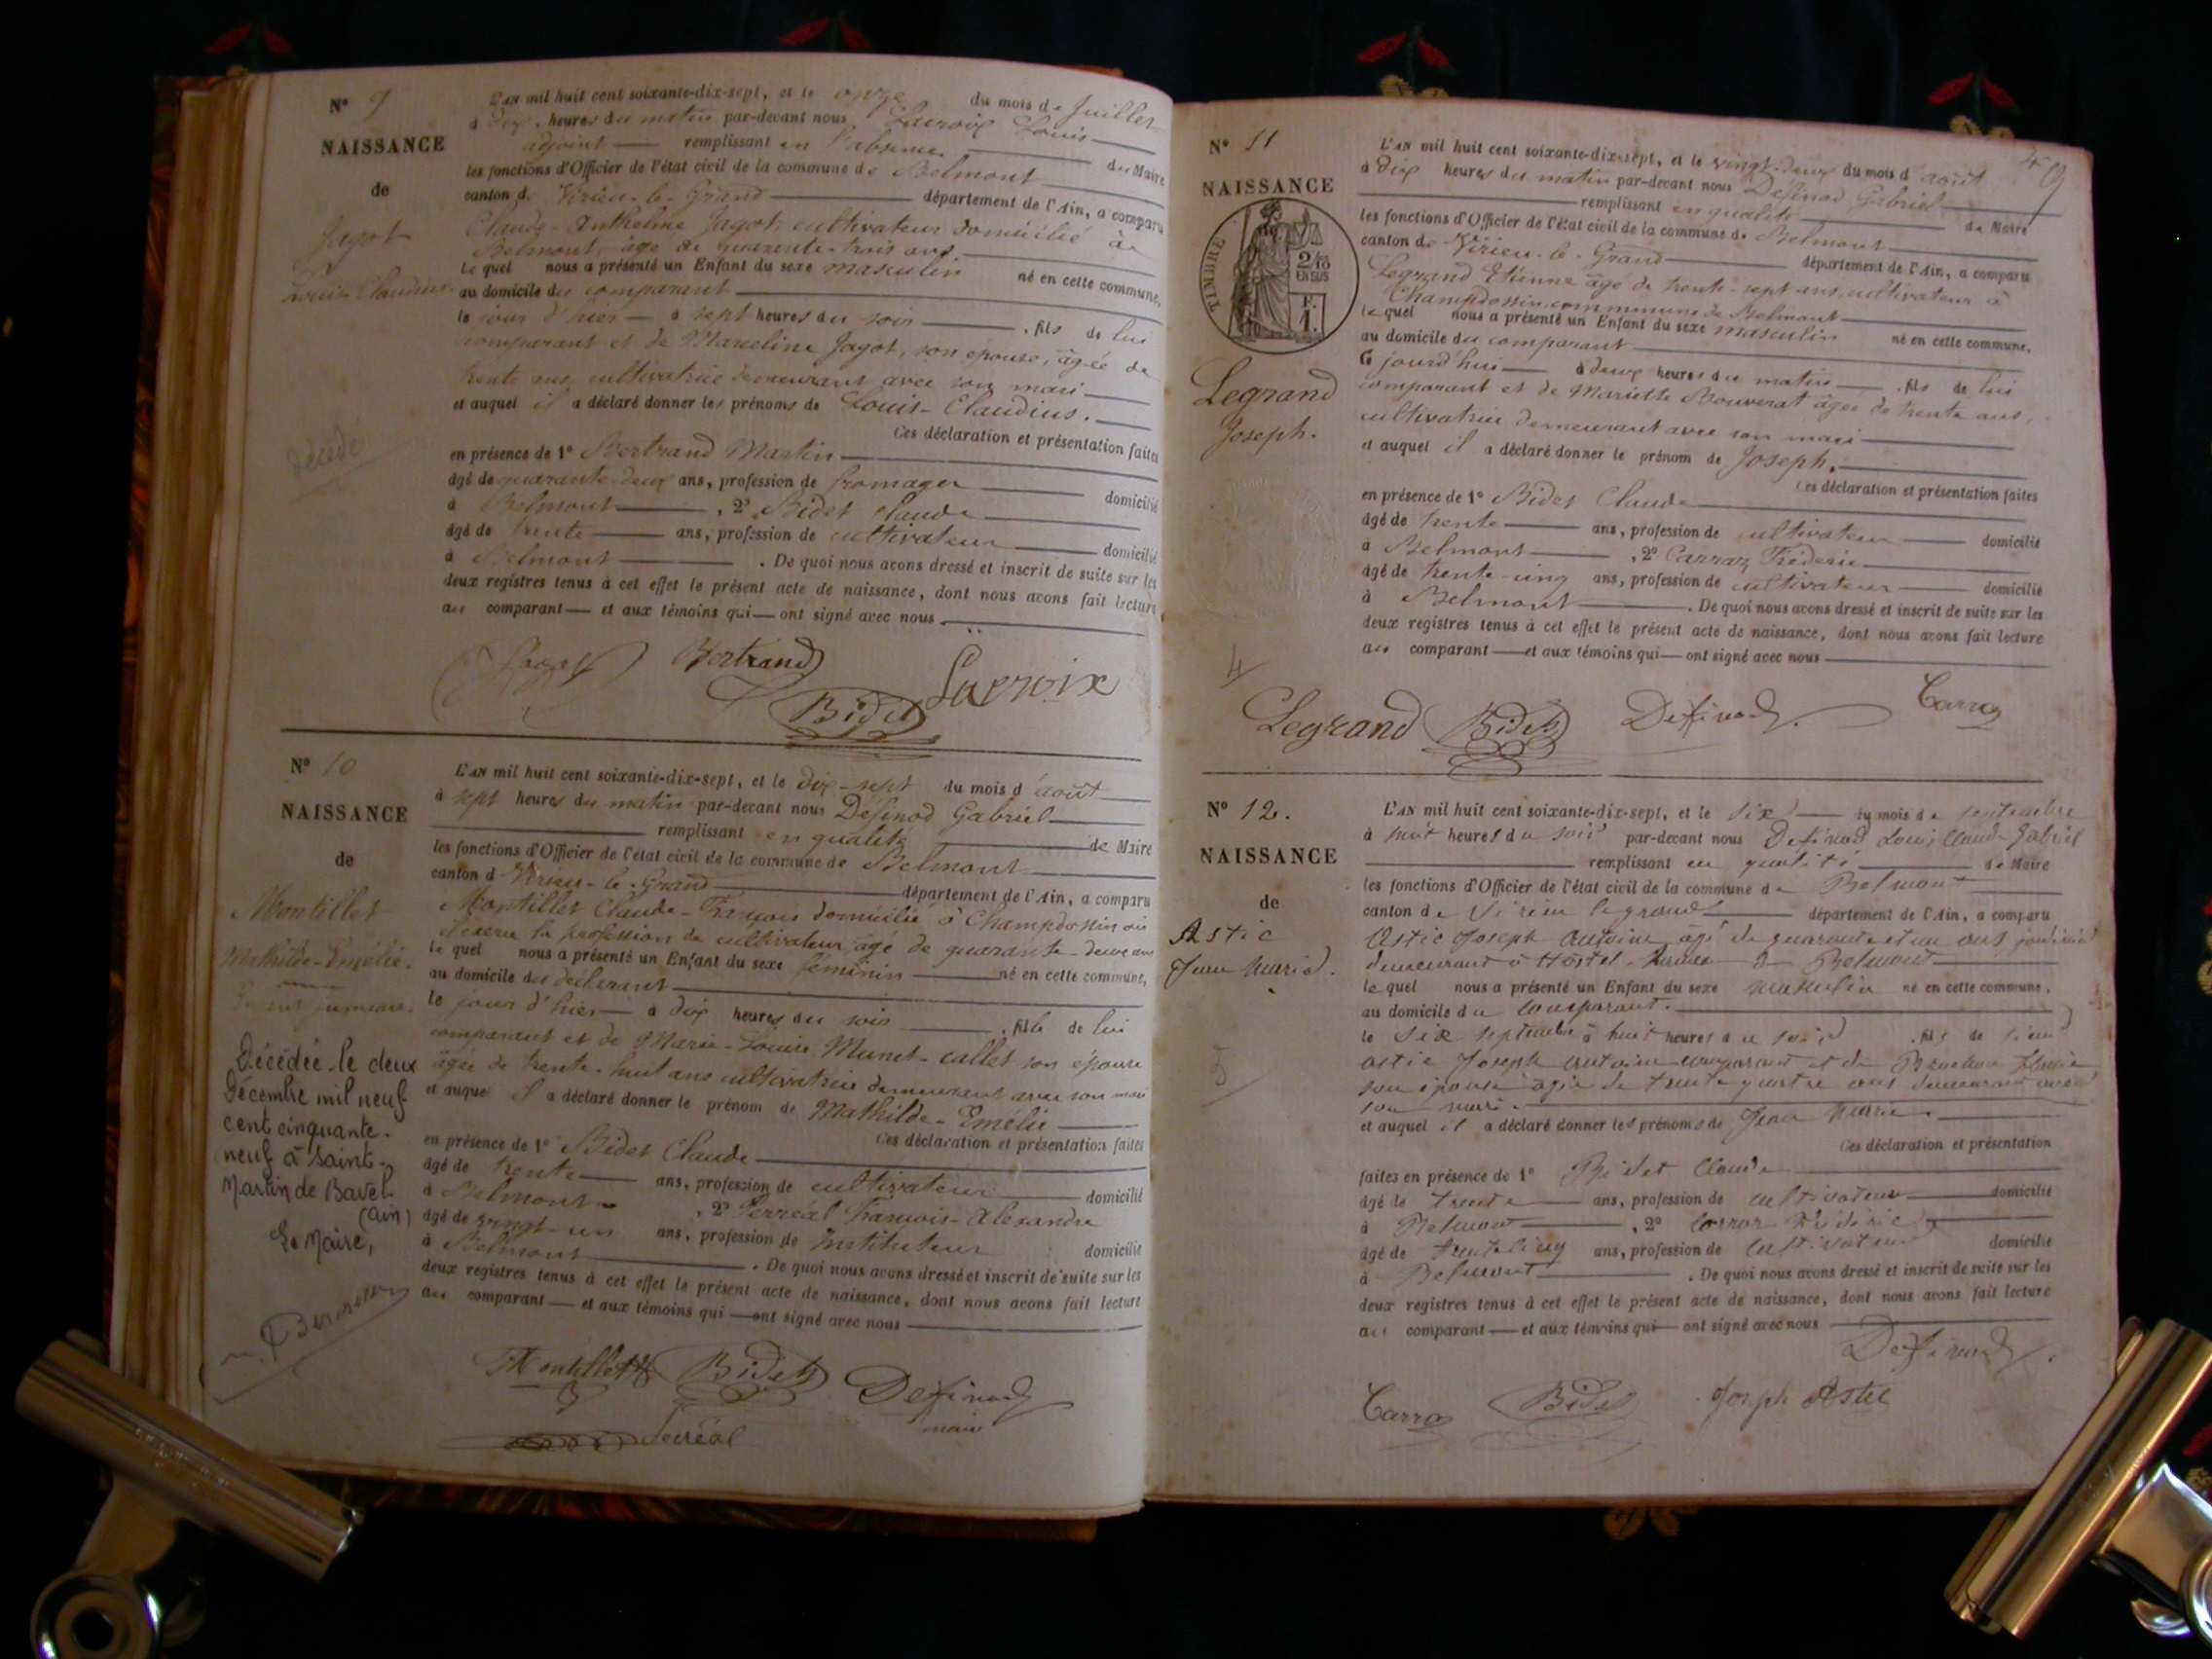 N° 9
NAISSANCE
de
Jagot
Louis Claudius
décédé
L'AN mil huit cent soixante-dix-sept, et le onze du mois de Juillet
à dix heures du matin par-devant nous Lacroix Louis
adjoint remplissant en l'absence du Maire
les fonctions d'Officier de l'état civil de la commune de Belmont
canton de Virieu-le-Grand département de l'Ain, a comparu
Claude-Anthelme Jagot, cultivateur domicilié à
Belmont, âgé de quarante-trois ans.
Le quel nous a présenté un Enfant du sexe masculin né en cette commune,
au domicile du comparant
le jour d'hier à sept heures du soir, fils de lui
comparant et de Marceline Jagot, son épouse, âgée de
trente ans, cultivatrice demeurant avec son mari
et auquel il a déclaré donner les prénoms de Louis-Claudius.
Ces déclaration et présentation faites
en présence de 1° Bertrand Martin
âgé de quarante-deux ans, profession de fromager domicilié
à Belmont, 2° Bidet Claude
âgé de trente ans, profession de cultivateur domicilié
à Belmont. De quoi nous avons dressé et inscrit de suite sur les
deux registres tenus à cet effet le présent acte de naissance, dont nous avons fait lecture
au comparant et aux témoins qui ont signé avec nous.
Jagot Bertrand Lacroix
Bidet
N° 10
NAISSANCE
de
Montillet
Mathilde-Emélie.
Décédée le deux
Décembre mil neuf
cent cinquante-
neuf à Saint-
Martin de Bavel
(Ain)
Le Maire,
L'AN mil huit cent soixante-dix-sept, et le dix-sept du mois d'août
à sept heures du matin par-devant nous Définod Gabriel
remplissant en qualité de Maire
les fonctions d'Officier de l'état civil de la commune de Belmont
canton de Virieu-le-Grand département de l'Ain, a comparu
Montillet Claude-François domicilié à Champdossin où
il exerce la profession de cultivateur, âgé de quarante-deux ans
Le quel nous a présenté un Enfant du sexe féminin né en cette commune,
au domicile du déclarant
le jour d'hier à dix heures du soir, fille de lui
comparant et de Marie-Louise Munet-callet son épouse
âgée de trente-huit ans cultivatrice demeurant avec son mari
et auquel il a déclaré donner le prénom de Mathilde-Emélie
Ces déclaration et présentation faites
en présence de 1° Bidet Claude
âgé de trente ans, profession de cultivateur domicilié
à Belmont, 2° Perréal François-Alexandre
âgé de vingt-un ans, profession de Instituteur domicilié
à Belmont. De quoi nous avons dressé et inscrit de suite sur les
deux registres tenus à cet effet le présent acte de naissance, dont nous avons fait lecture
au comparant et aux témoins qui ont signé avec nous
Montillet Bidet Definod
maire
Perréal
N° 11
NAISSANCE
TIMBRE
2/10
EN SUS
F.
1.
Legrand
Joseph.
4
L'AN mil huit cent soixante-dix-sept, et le vingt-deux du mois d'août
à dix heures du matin par-devant nous Définod Gabriel
remplissant en qualité de Maire
les fonctions d'Officier de l'état civil de la commune de Belmont
canton de Virieu-le-Grand département de l'Ain, a comparu
Legrand Etienne âgé de trente-sept ans, cultivateur à
Champdossin, commune de Belmont
Le quel nous a présenté un Enfant du sexe masculin né en cette commune,
au domicile du comparant
Ce jourd'hui à deux heures du matin, fils de lui
comparant et de Mariette Bouverat âgée de trente ans,
cultivatrice demeurant avec son mari
et auquel il a déclaré donner le prénom de Joseph.
Ces déclaration et présentation faites
en présence de 1° Bidet Claude
âgé de trente ans, profession de cultivateur domicilié
à Belmont, 2° Carraz Fréderic
âgé de trente-cinq ans, profession de cultivateur domicilié
à Belmont. De quoi nous avons dressé et inscrit de suite sur les
deux registres tenus à cet effet le présent acte de naissance, dont nous avons fait lecture
au comparant et aux témoins qui ont signé avec nous
Legrand Bidet Definod Carraz
N° 12.
NAISSANCE
de
Astic
Jean Marie.
5
L'AN mil huit cent soixante-dix-sept, et le six du mois de septembre
à huit heures du soir par-devant nous Définod Louis Claude-Gabriel
remplissant en qualité de Maire
les fonctions d'Officier de l'état civil de la commune de Belmont
canton de Virieu le grand département de l'Ain, a comparu
Astic Joseph Antoine âgé de quarante et un ans
demeurant à Hostel de Belmont
le quel nous a présenté un Enfant du sexe masculin né en cette commune,
au domicile du comparant.
le six septembre à huit heures du soir, fils de
Astic Joseph Antoine comparant et de
son épouse âgée de trente quatre ans demeurant avec
son mari.
et auquel il a déclaré donner les prénoms de Jean Marie
Ces déclaration et présentation
faites en présence de 1° Bidet Claude
âgé de trente ans, profession de cultivateur domicilié
à Belmont, 2° Carraz Fréderic
âgé de trente cinq ans, profession de cultivateur domicilié
à Belmont. De quoi nous avons dressé et inscrit de suite sur les
deux registres tenus à cet effet le présent acte de naissance, dont nous avons fait lecture
au comparant et aux témoins qui ont signé avec nous
Definod
Carraz Bidet Joseph Astic